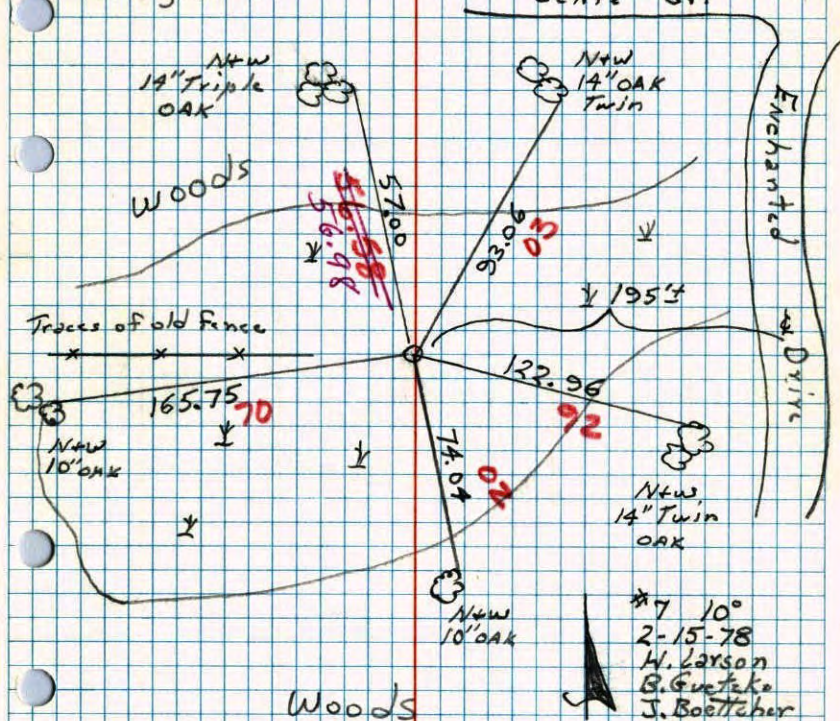 N+W
14" Triple
OAK
N+W
14" OAK
Twin
Enchanted
Drive
Woods
57.00
56.58
56.98
93.06
03
195'±
Traces of old Fence
165.75
70
122.96
92
N+W
10" OAK
74.04
02
N+W
14" Twin
OAK
N+W
10" OAK
#7 10°
2-15-78
W. Larson
J. Boettcher
Woods